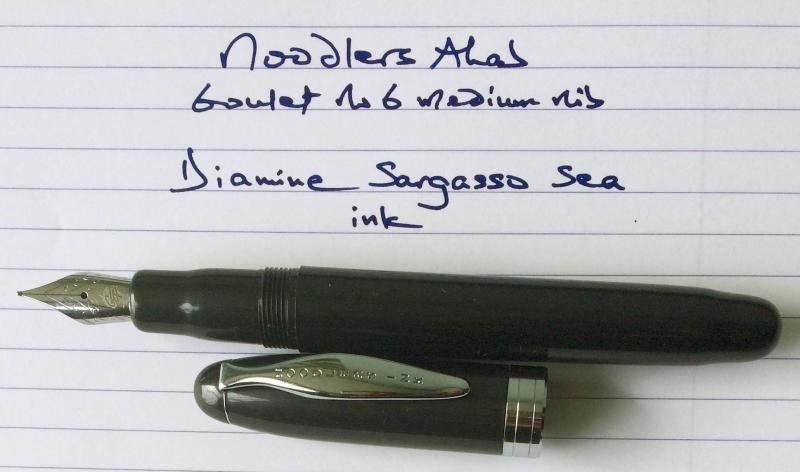 Noodlers Ahab
Goulet No 6 medium nib
Diamine Sargasso Sea
ink